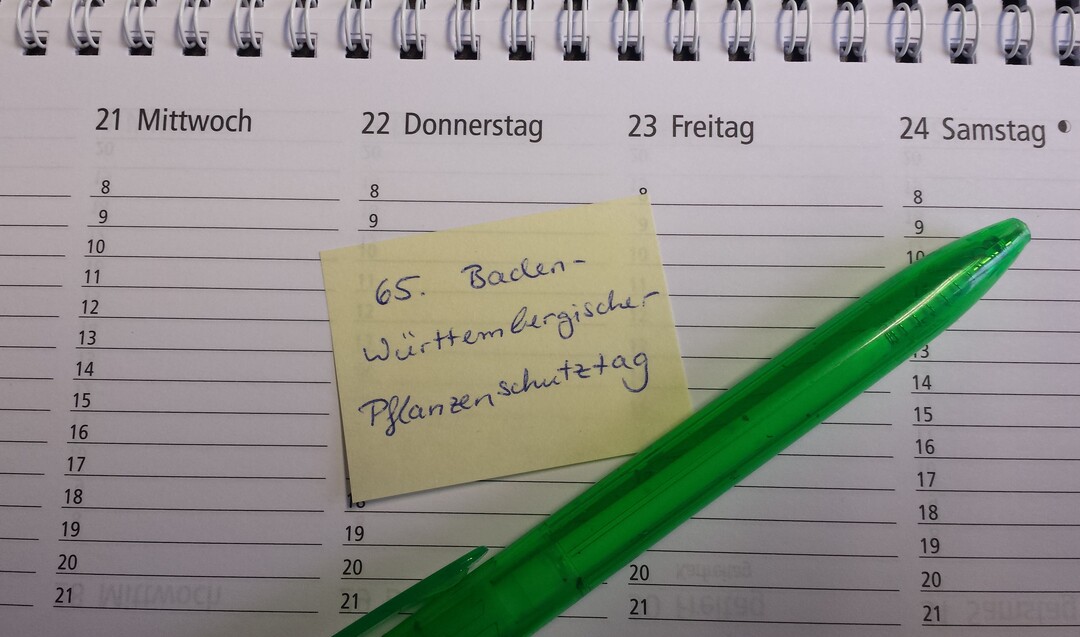 21 Mittwoch
22 Donnerstag
23 Freitag
24 Samstag
8
9
10
11
12
13
14
15
16
17
18
19
20
21
8
9
65. Baden-
Württembergischer
Pflanzenschutztag
18
19
20
21
8
20
21
8
9
10
13
14
15
16
17
18
19
20
21